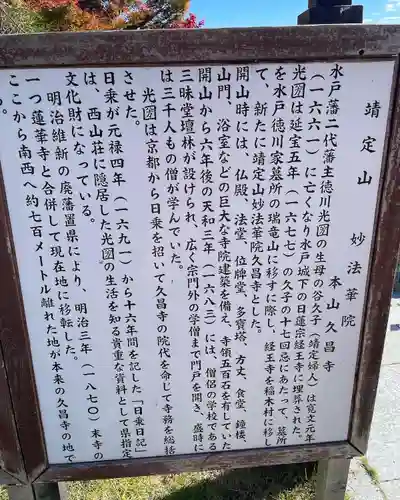 靖定山　妙法華院
本山久昌寺
水戸藩二代藩主徳川光圀の生母の谷久子（靖定婦人）は寛文元年
（一六六一）に亡くなり水戸城下の日蓮宗経王寺に埋葬された。
光圀は延宝五年（一六七七）の久子の十七回忌にあたって、墓所
を水戸徳川家墓所の瑞竜山に移すに際し、経王寺を稲木村に移し
て、新たに靖定山妙法華院久昌寺とした。
開山時には、仏殿、法堂、位牌堂、多宝塔、方丈、食堂、鐘楼、
山門、浴室などの巨大な寺院建築を備え、寺領五百石を有していた
開山から六年後の天和三年（一六八三）には、僧侶の学校である
三昧堂壇林が設けられ、広く宗門外の学僧まで門戸を開き、盛時に
は三千人もの僧が学んでいた。
光圀は京都から日乗を招いて久昌寺の院代を命じて寺務を総括
させた。
日乗が元禄四年（一六九一）から十六年間を記した「日乗日記」
は、西山荘に隠居した光圀の生活を知る貴重な資料として県指定
文化財になっている。
明治維新の廃藩置県により、明治三年（一八七〇）末寺の
一つ蓮華寺と合併して現在地に移転した。
ここから南西へ約七百メートル離れた地が本来の久昌寺の地で
る。